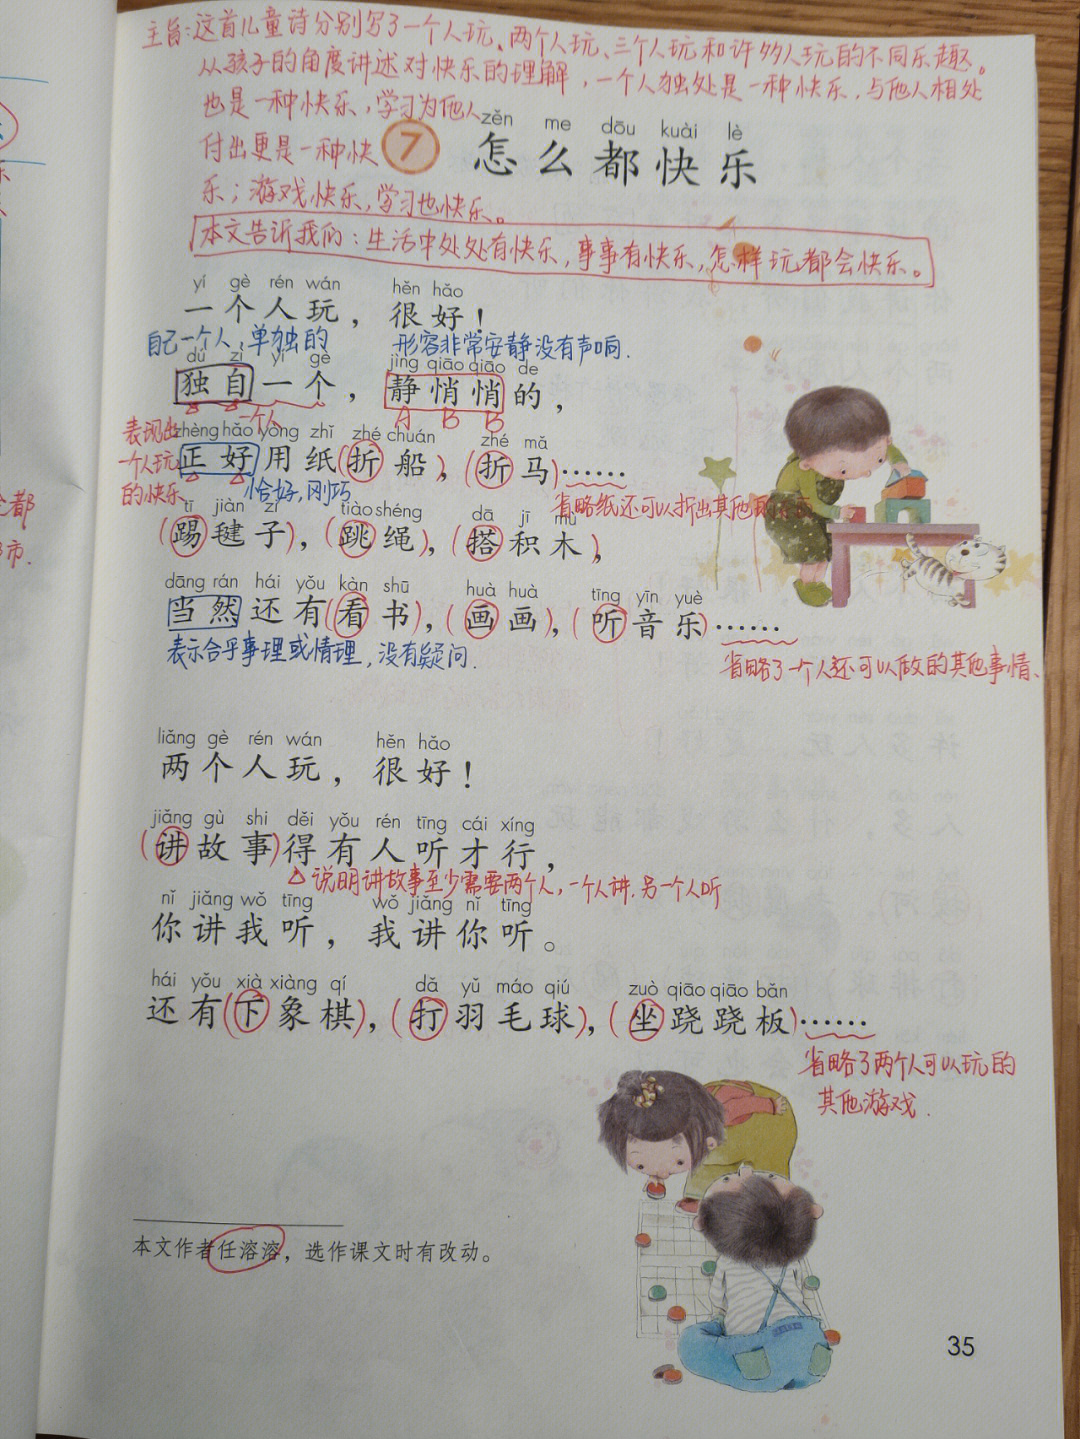 主旨：这首儿童诗分别写了一个人玩、两个人玩、三个人玩和许多人玩的不同乐趣。
从孩子的角度讲述对快乐的理解，一个人独处是一种快乐，与他人相处
也是一种快乐，学习为他人
付出更是一种快
乐；游戏快乐，学习也快乐。
zěn me dōu kuài lè
7 怎么都快乐
本文告诉我们：生活中处处有快乐，事事有快乐，怎样玩都会快乐。
yí gè rén wán hěn hǎo
一个人玩，很好！
自己一个人，单独的 形容非常安静没有声响.
dú zì yí gè jìng qiāo qiāo de
独自一个，静悄悄的，
一个人 A B B
表现出
一个人玩
的快乐
zhèng hǎo yòng zhǐ zhé chuán zhé mǎ
正好用纸(折船)，(折马)……
恰好，刚巧 省略纸还可以折出其他
tī jiàn zi tiào shéng dā jī mù
(踢毽子)，(跳绳)，(搭积木)，
dāng rán hái yǒu kàn shū huà huà tīng yīn yuè
当然还有(看书)，(画画)，(听音乐)……
表示合乎事理或情理，没有疑问. 省略了一个人还可以做的其他事情、
liǎng gè rén wán hěn hǎo
两个人玩，很好！
jiǎng gù shi děi yǒu rén tīng cái xíng
(讲故事)得有人听才行，
△说明讲故事至少需要两个人，一个人讲，另一个人听
nǐ jiǎng wǒ tīng wǒ jiǎng nǐ tīng
你讲我听，我讲你听。
hái yǒu xià xiàng qí dǎ yǔ máo qiú zuò qiāo qiāo bǎn
还有(下象棋)，(打羽毛球)，(坐跷跷板)……
省略了两个人可以玩的
其他游戏.
本文作者任溶溶，选作课文时有改动。
35